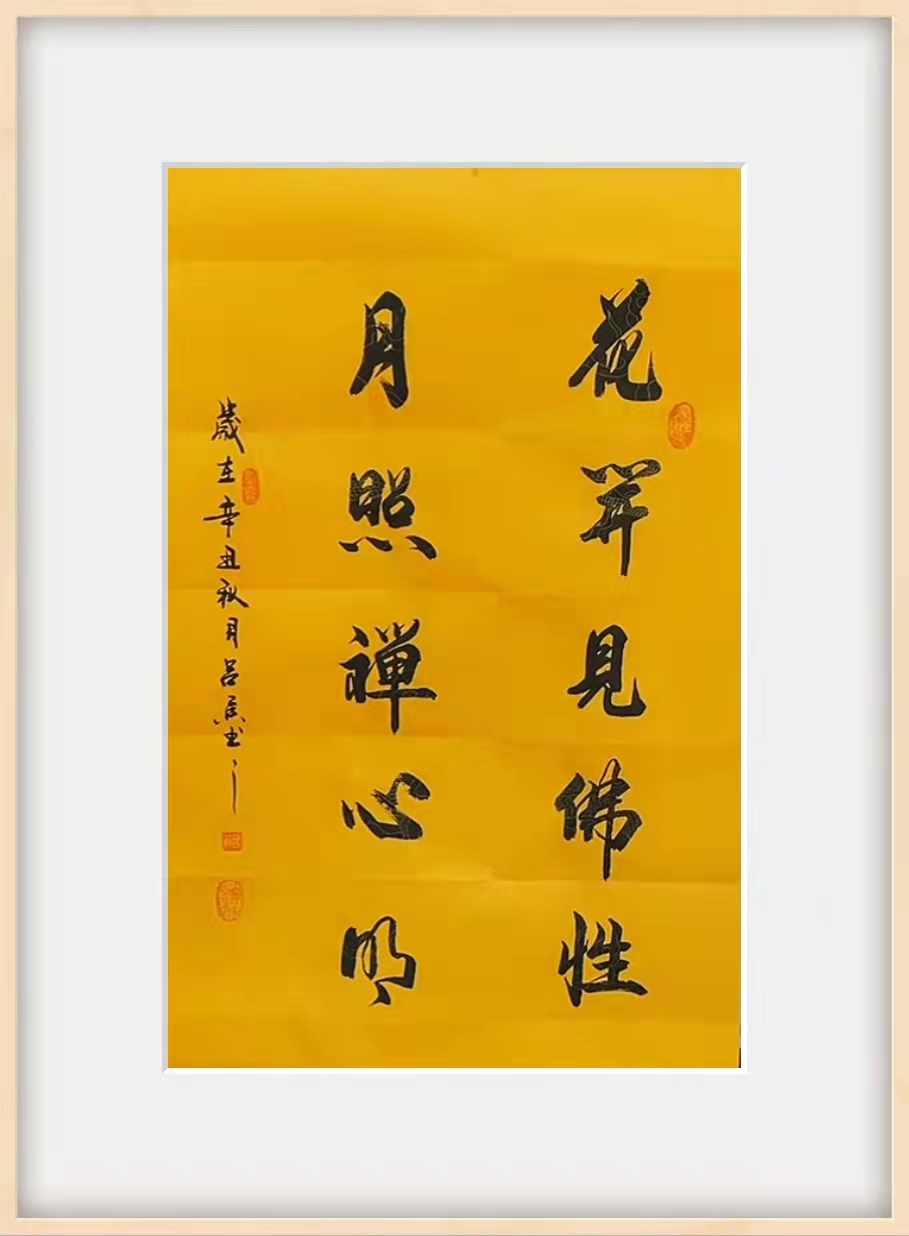 花開見佛性
月照禪心明
歲在辛丑秋月吕书